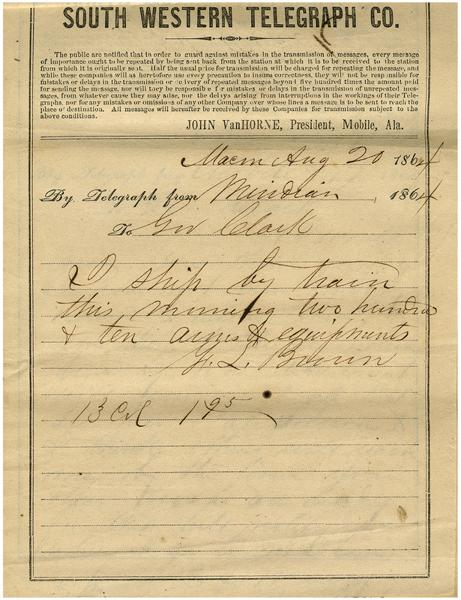 SOUTH WESTERN TELEGRAPH CO.
The public are notified that in order to guard against mistakes in the transmission of messages, every message
of importance ought to be repeated by being sent back from the station at which it is to be received to the station
from which it is originally sent. Half the usual price for transmission will be charged for repeating the message, and
while these companies will as heretofore use every precaution to insure correctness, they will not be responsible for
mistakes or delays in the transmission or delivery of repeated messages beyond five hundred times the amount paid
for sending the message, nor will they be responsible for mistakes or delays in the transmission of unrepeated mes-
sages, from whatever cause they may arise, nor the delays arising from interruptions in the workings of their Tele-
graphs, nor for any mistakes or omissions of any other Company over whose lines a message is to be sent to reach the
place of destination. All messages will hereafter be received by these Companies for transmission subject to the
above conditions.
JOHN VanHORNE, President, Mobile, Ala.
Macon Aug 20 1864
By Telegraph from Meridian , 1864
To Gov Clark
I ship by train
this morning two hundred
& ten arms & equipments
L. Brown
13 Col 195